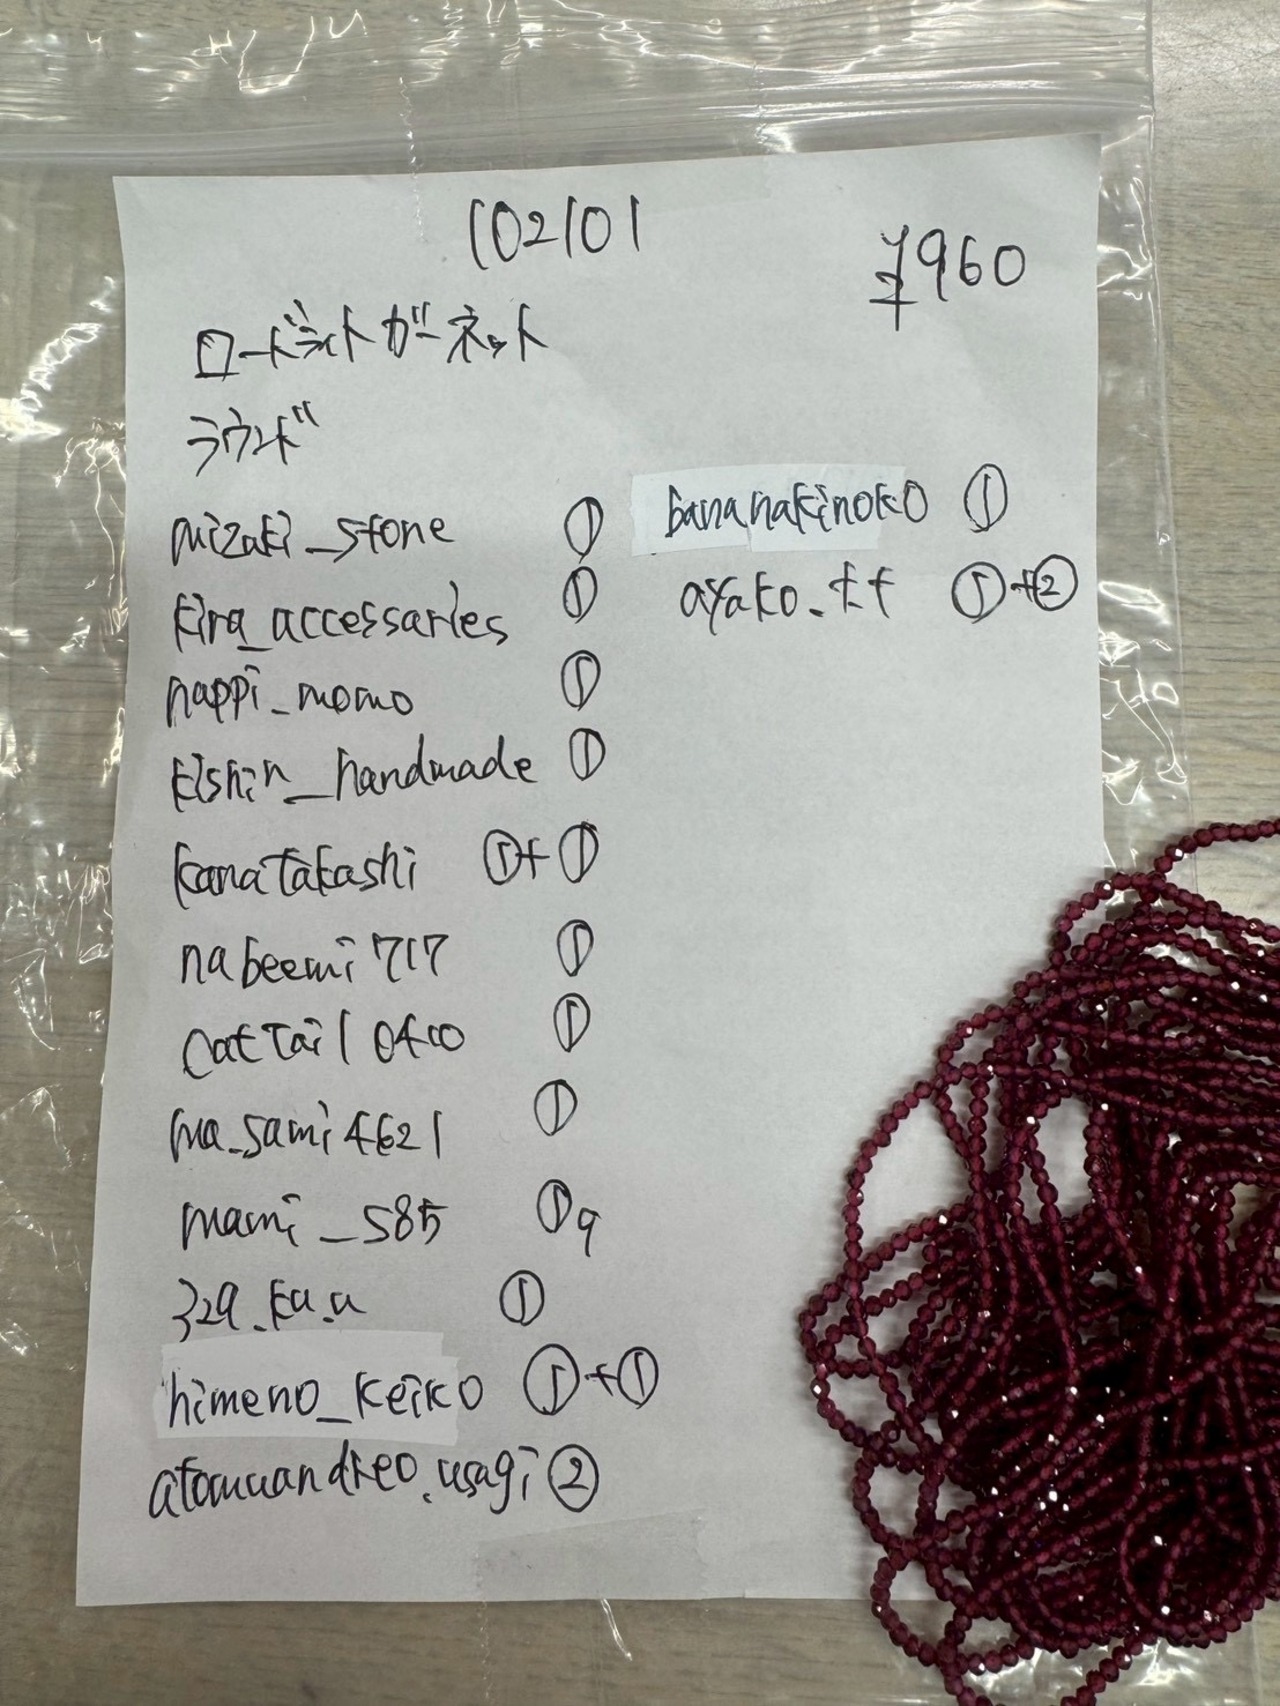 102101
¥960
ロードライトガーネット
ラウンド
mizaki_stone ①
kira_accessaries ①
nappi_momo ①
kishin_handmade ①
kanatakashi ①+①
nabeemi717 ①
cattail0400 ①
ma_sami4621 ①
mami_585 ①9
329.ku.u ①
himeno_keiko ①+①
atomuandreo.usagi ②
bananakinoko ①
ayako.kt ①+②